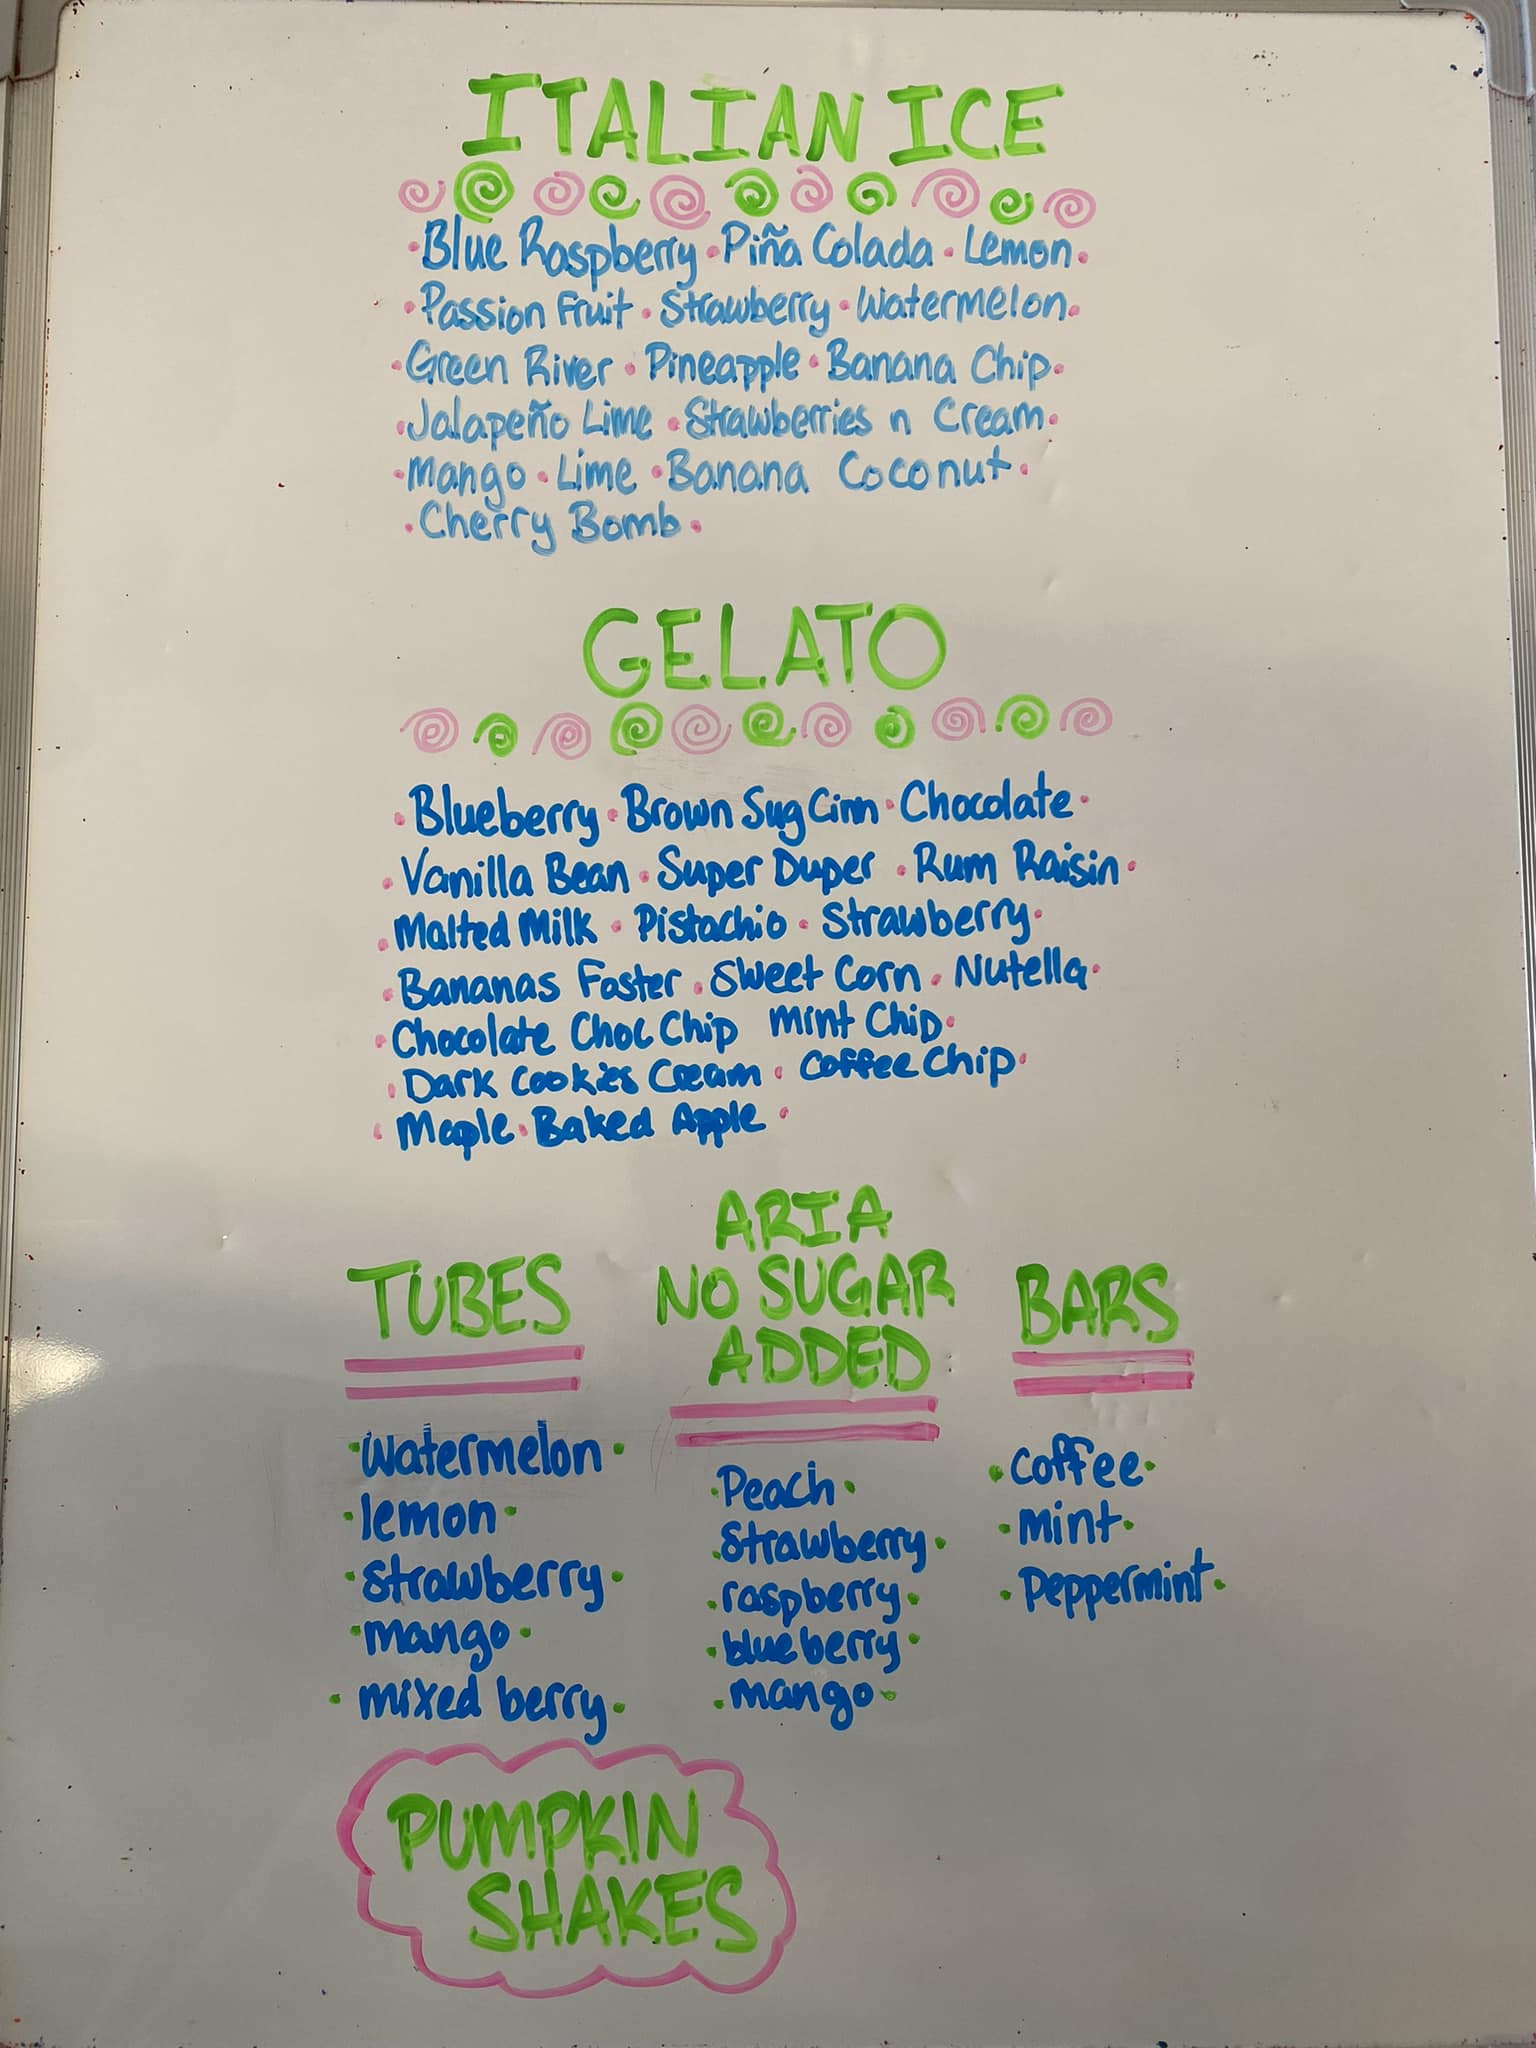 ITALIAN ICE
• Blue Raspberry • Piña Colada • Lemon •
• Passion Fruit • Strawberry • Watermelon •
• Green River • Pineapple • Banana Chip •
• Jalapeño Lime • Strawberries n Cream •
• Mango • Lime • Banana Coconut •
• Cherry Bomb •
GELATO
• Blueberry • Brown Sug Cinn • Chocolate •
• Vanilla Bean • Super Duper • Rum Raisin •
• Malted Milk • Pistachio • Strawberry •
• Bananas Foster • Sweet Corn • Nutella •
• Chocolate Choc Chip Mint Chip •
• Dark Cookies Cream • Coffee Chip •
• Maple • Baked Apple •
TUBES
• watermelon •
• lemon •
• strawberry •
• mango •
• mixed berry •
ARIA
NO SUGAR
ADDED
• Peach •
• Strawberry •
• raspberry •
• blueberry •
• mango •
BARS
• Coffee •
• Mint •
• Peppermint •
PUMPKIN
SHAKES